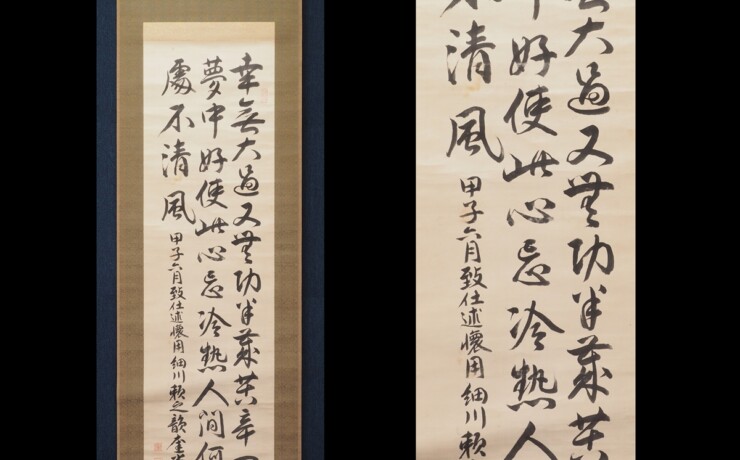 幸無大過又無功半歳苦辛一
夢中好使此心忘冷熱人間何
處不清風
甲子六月致仕述懷用細川頼之韻奎堂
無大過又無功半歳苦
中好使此心忘冷熱人
不清風
甲子六月致仕述懷用細川頼